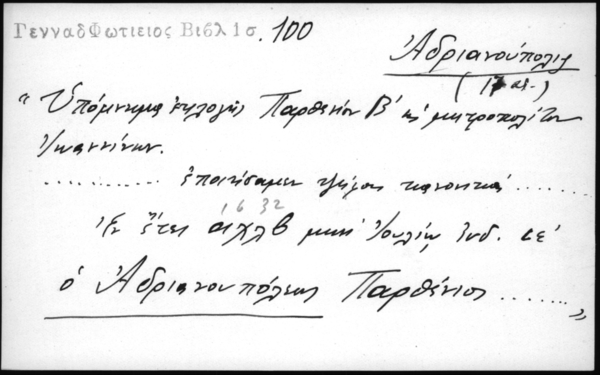 Γενναδ Φωτιειος Βιβλ 1 σ. 100
Ἀδριανούπολις
(17 αι.)
"Ὑπόμνημα ἐκλογῆς Παρθενίου Β' ὡς μητροπολίτου
Ἰωαννίνων.
.......... ἐποιήσαμεν ψήφους κανονικάς ........
1632
Ἐν ἔτει αχλβ μηνὶ Ἰουλίῳ Ἰνδ. ιε'
ὁ Ἀδριανουπόλεως Παρθένιος ........"